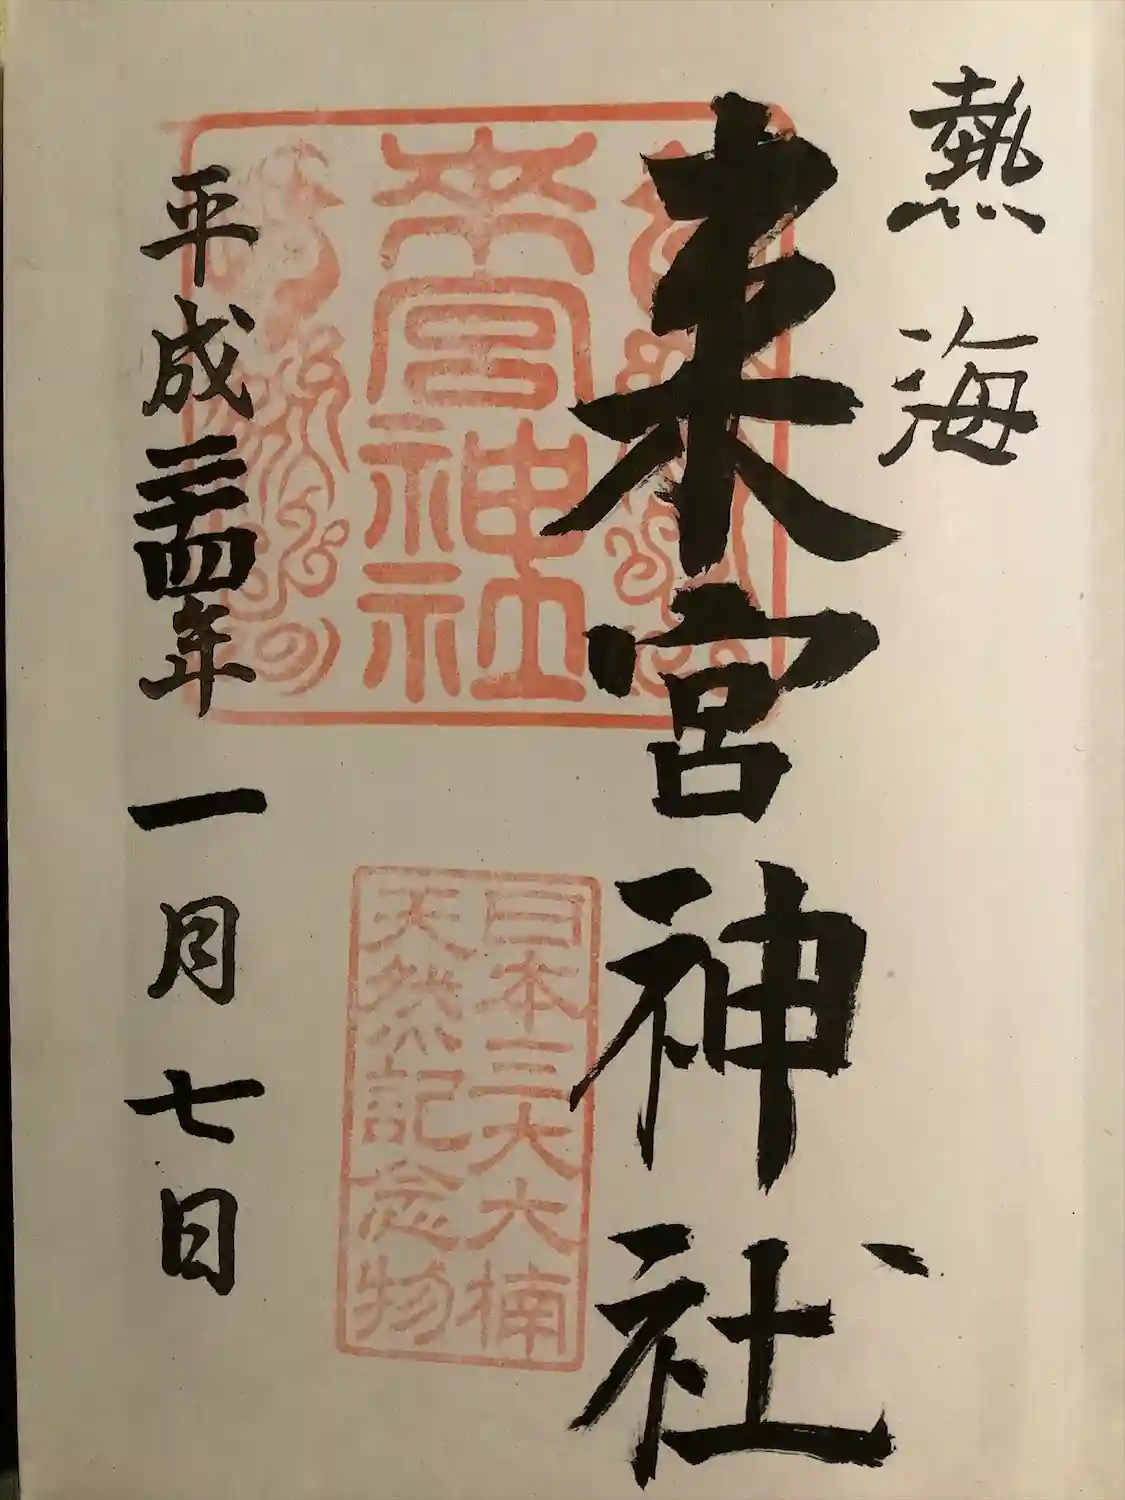 熱海
来宮神社
來宮神社
日本三大大楠
天然記念物
平成二十四年一月七日